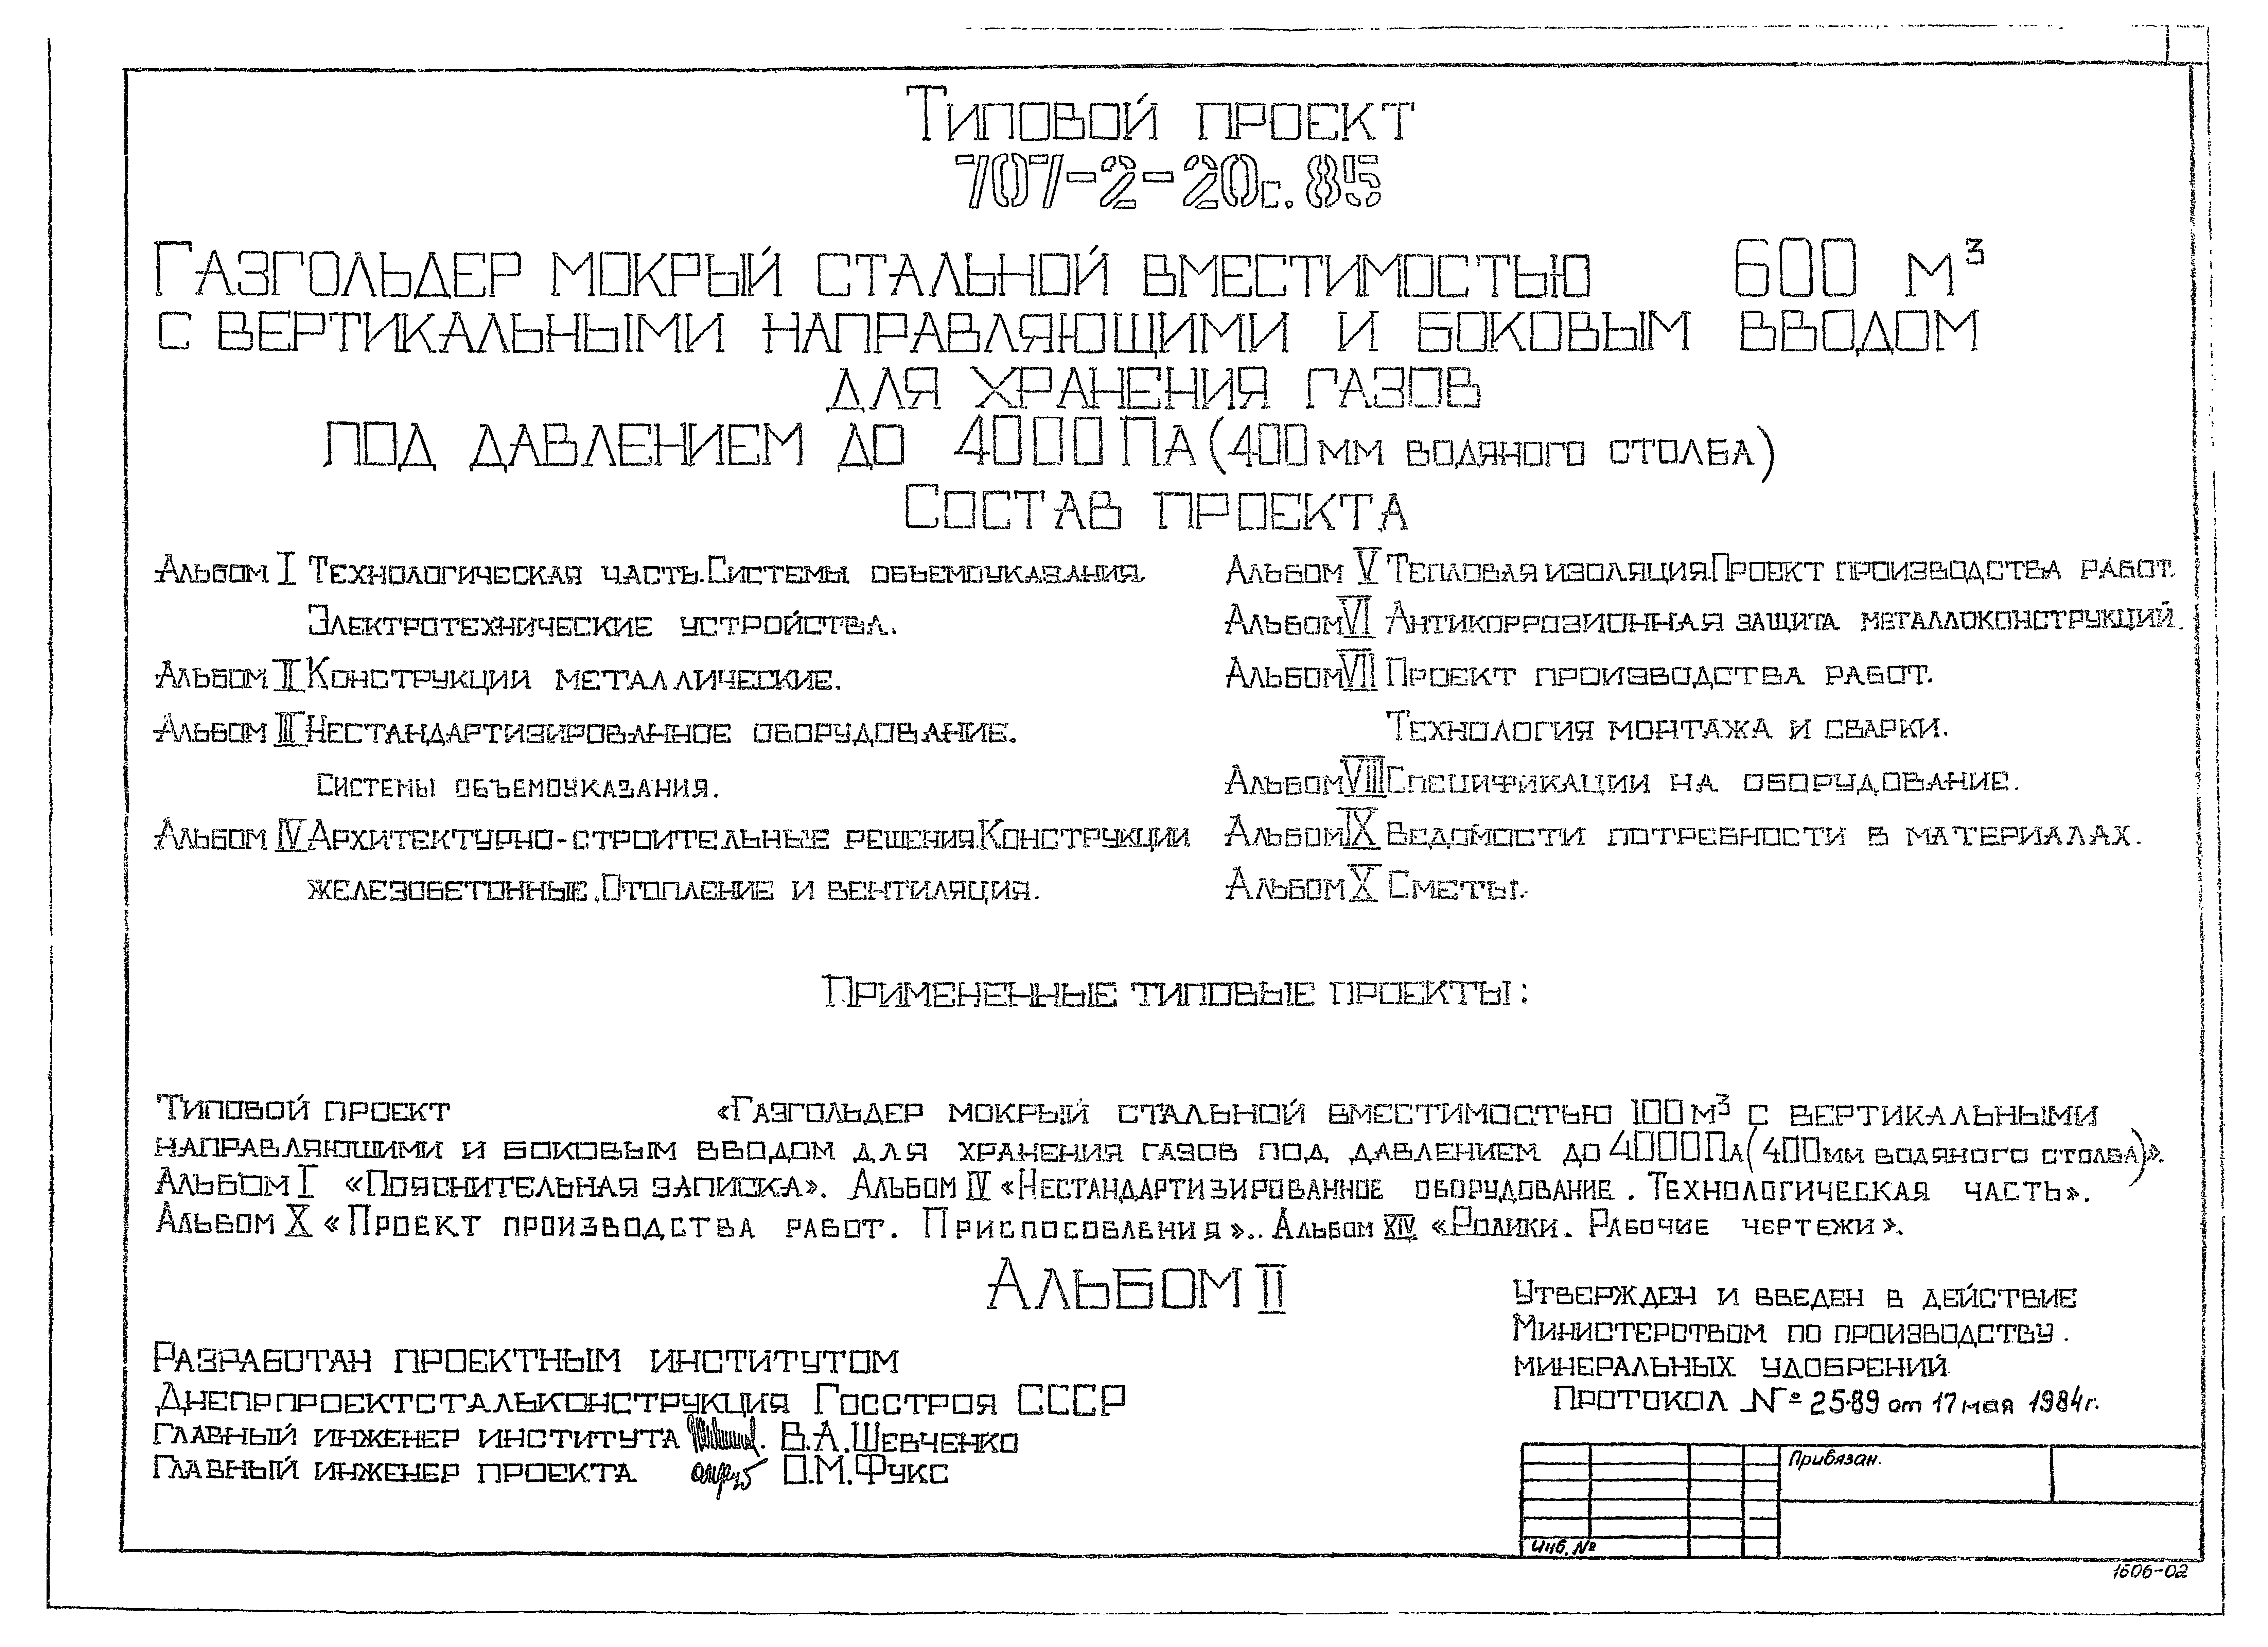 Типовой проект
707-2-20с.85
Газгольдер мокрый стальной вместимостью 600 м³
с вертикальными направляющими и боковым вводом
для хранения газов
под давлением до 4000 Па (400 мм водяного столба)
Состав проекта
Альбом I Технологическая часть. Системы объемоуказания.
Электротехнические устройства.
Альбом II Конструкции металлические.
Альбом III Нестандартизированное оборудование.
Системы объемоуказания.
Альбом IV Архитектурно-строительные решения. Конструкции
железобетонные. Отопление и вентиляция.
Альбом V Тепловая изоляция. Проект производства работ.
Альбом VI Антикоррозионная защита металлоконструкций.
Альбом VII Проект производства работ.
Технология монтажа и сварки.
Альбом VIII Спецификации на оборудование.
Альбом IX Ведомости потребности в материалах.
Альбом X Сметы.
Примененные типовые проекты:
Типовой проект «Газгольдер мокрый стальной вместимостью 100 м³ с вертикальными
направляющими и боковым вводом для хранения газов под давлением до 4000 Па (400 мм водяного столба)».
Альбом I «Пояснительная записка». Альбом IV «Нестандартизированное оборудование. Технологическая часть».
Альбом X «Проект производства работ. Приспособления».. Альбом XIV «Ролики. Рабочие чертежи».
Альбом II
Утвержден и введен в действие
Министерством по производству.
минеральных удобрений
Протокол № 25-89 от 17 мая 1984г.
Разработан проектным институтом
Днепрпроектстальконструкция Госстроя СССР
Главный инженер института В.А.Шевченко
Главный инженер проекта О.М.Фукс
Привязан.
Инв. №
1606-02